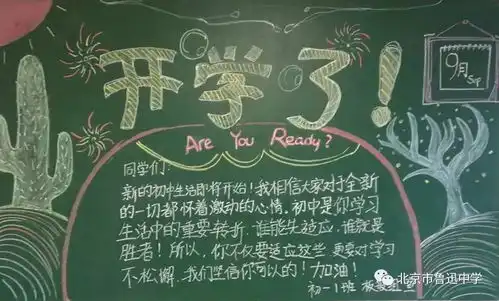 开学了!
9月
Sep
Are You Ready?
同学们:
新的初中生活即将开始!我相信大家对于全新
的一切都怀着激动的心情。初中是你学习
生活中的重要转折,谁能先适应,谁就是
胜者!所以,你不仅要适应这些,更要对学习
不松懈,我们坚信你可以的!加油!
初一1班 板报组
北京市鲁迅中学